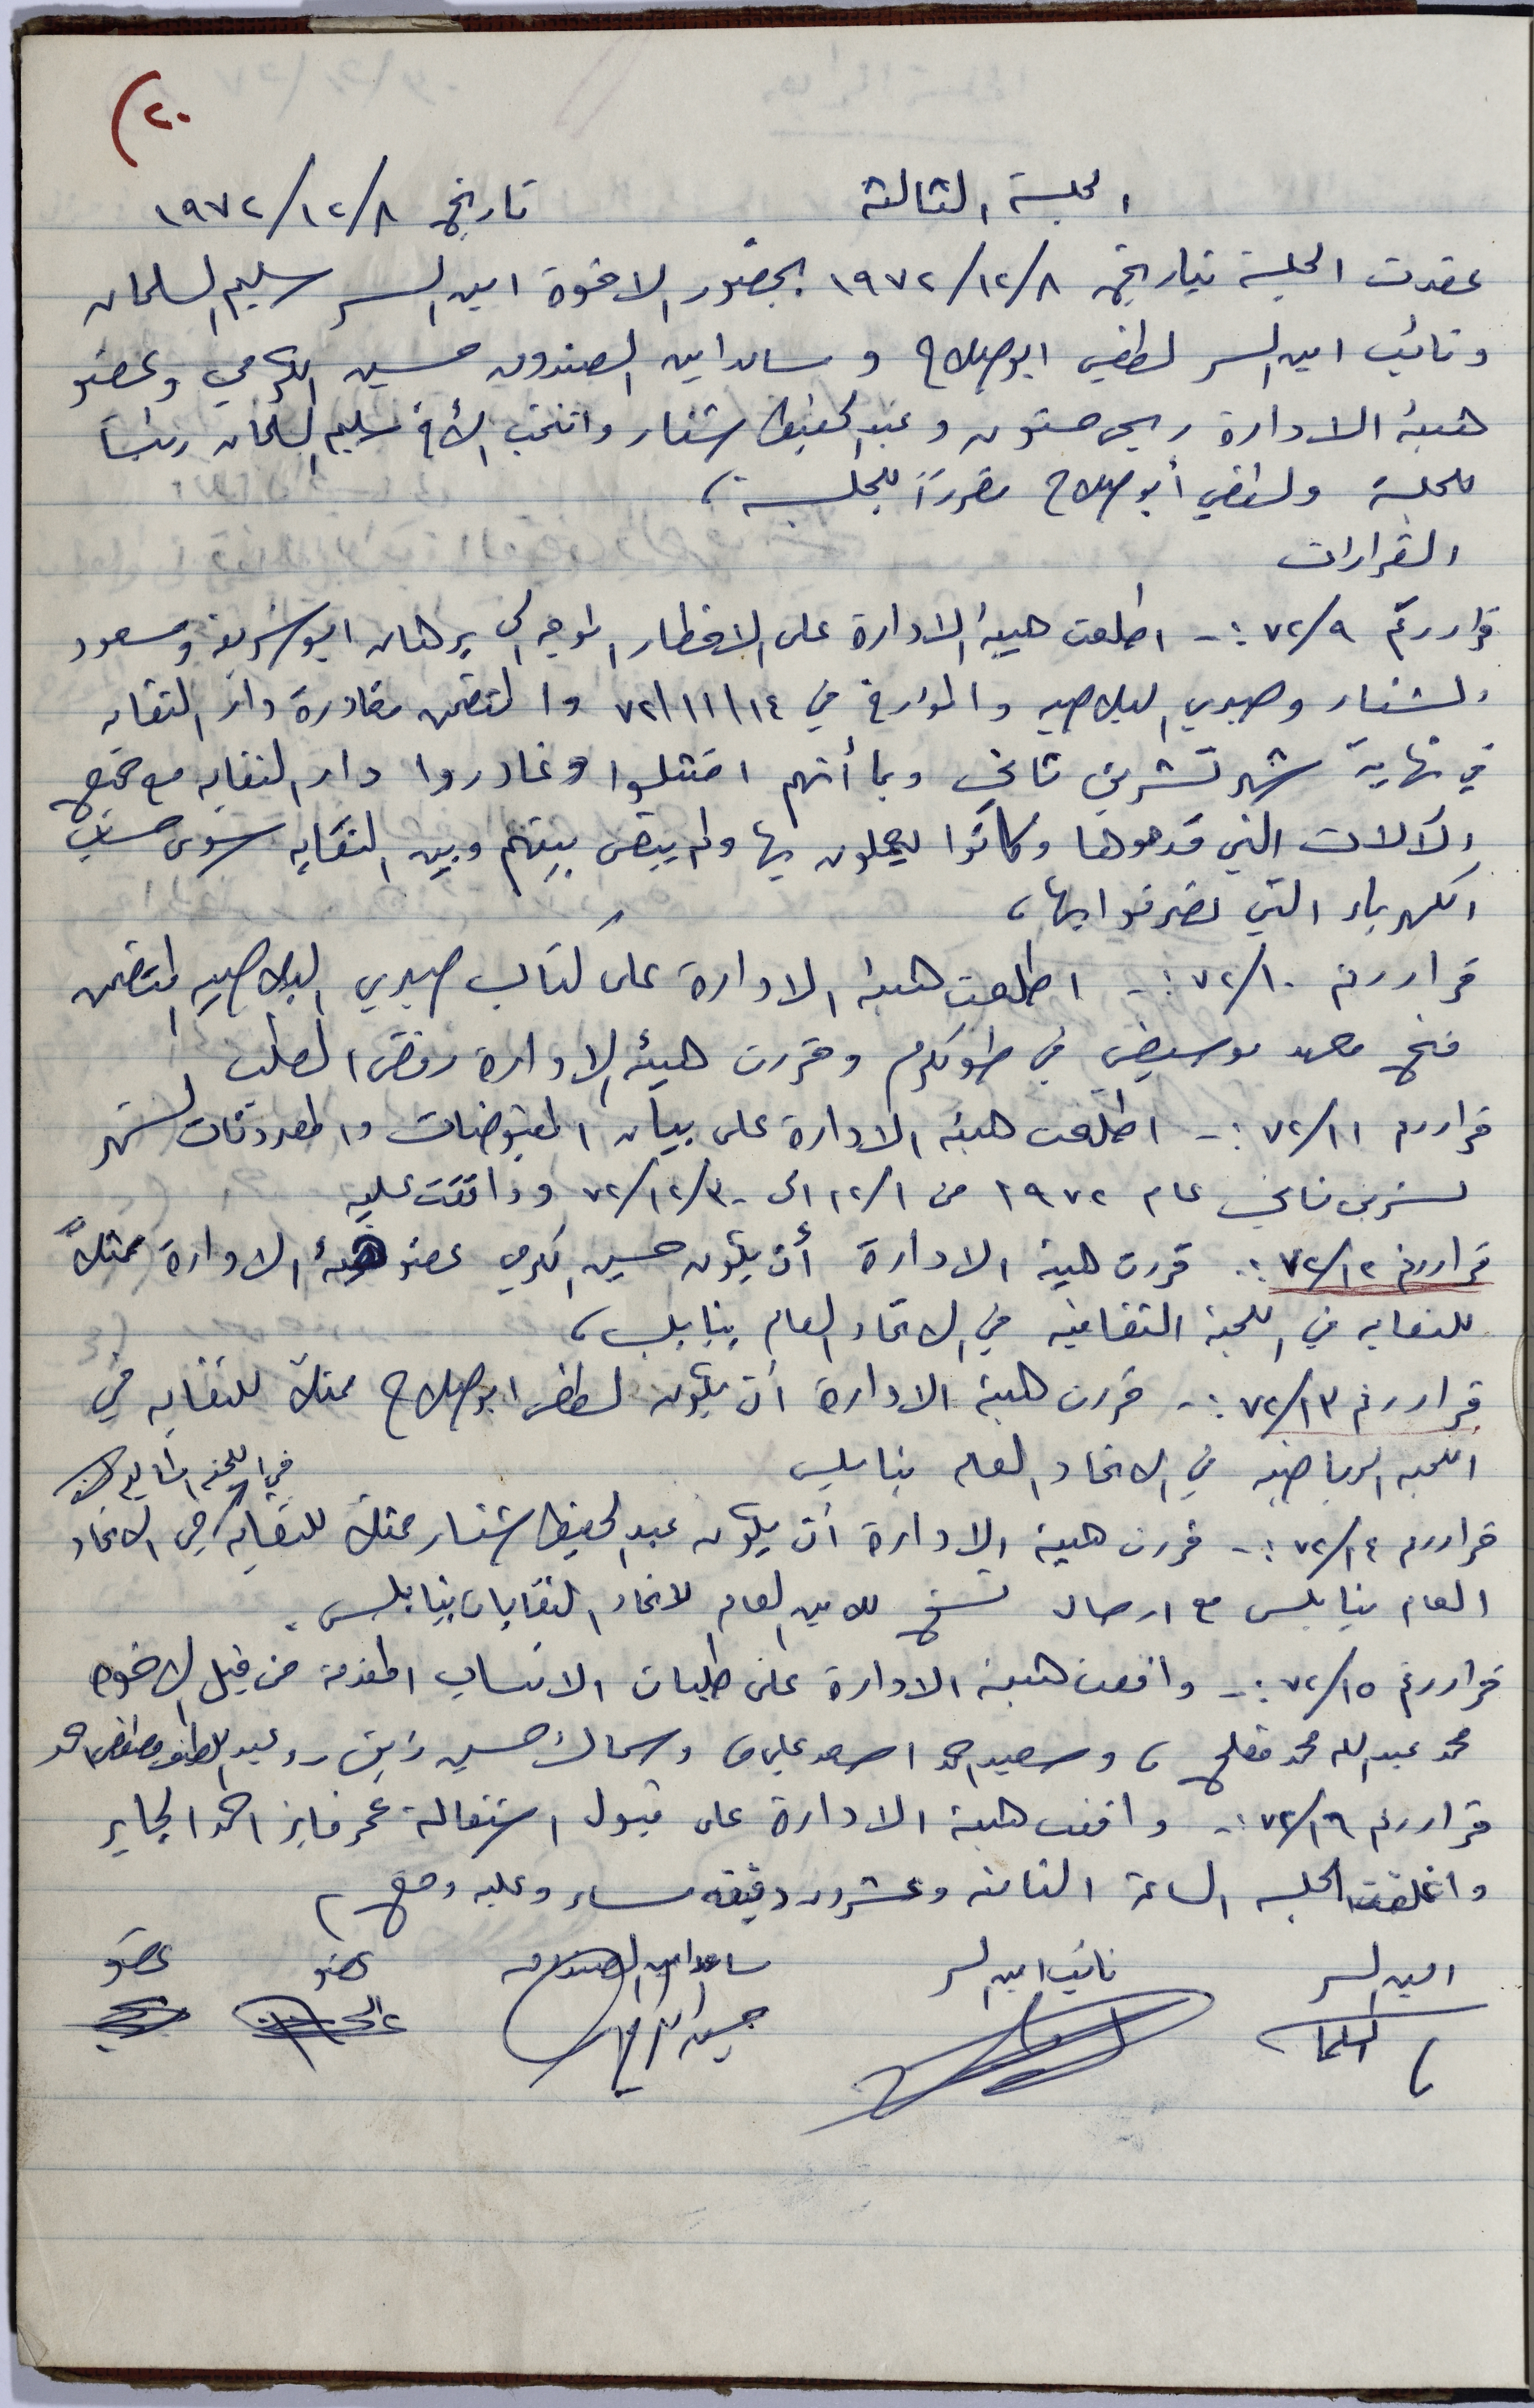 (٢٠
الجلسة الثالثة تاريخ ١٩٧٢/١٢/٨
عقدت الجلسة بتاريخ ١٩٧٢/١٢/٨ بحضور الاخوة امين السر سليم السلمان
ونائب امين السر لطفي ابو صلاح و ساعد امين الصندوق حسين الكرمي وعضو
هيئة الادارة ربحي حنون وعبد الحفيظ شنار وانتخب الأخ سليم السلمان رئيساً
للجلسة ولطفي أبو صلاح مقرراً للجلسة ،
القرارات
قرار رقم ٧٢/٩ :- اطلعت هيئة الادارة على الاخطار الموجه الى برهان ابو شريفة ومسعود
الشنار وصبري البلاصيه والمؤرخ في ٧٢/١١/١٤ والمتضمن مغادرة دار النقابه
في نهاية شهر تشرين ثاني وبما أنهم امتثلوا وغادروا دار النقابه مع جميع
الآلات التي قدموها وكانوا يعملون بها ولم يبقى بينهم وبين النقابه سوى حساب
الكهرباء التي تصرفوا بها ،
قرار رقم ٧٢/١٠ :- اطلعت هيئة الادارة على كتاب صبري البلاصيه المتضمن
فتح معهد موسيقي في طولكرم وقررت هيئة الادارة رفض الطلب
قرار رقم ٧٢/١١ :- اطلعت هيئة الادارة على بيان المقبوضات والمدفوعات لشهر
تشرين ثاني عام ١٩٧٢ من ١٢/١ الى ٧٢/١٢/٣٠ ووافقت عليه
قرار رقم ٧٢/١٢ :- قررت هيئة الادارة أن يكون حسين الكرمي عضو هيئة الادارة ممثلاً
للنقابه في اللجنة الثقافيه في الاتحاد العام بنابلس ،
قرار رقم ٧٢/١٣ :- قررت هيئة الادارة أن يكون لطفي ابو صلاح ممثلاً للنقابه في
اللجنه الرياضيه في الاتحاد العام بنابلس
في اللجنه الماليه
قرار رقم ٧٢/١٤ :- قررت هيئة الادارة أن يكون عبد الحفيظ شنار ممثلاً للنقابه في الاتحاد
العام بنابلس مع ارسال نسخ للامين العام لاتحاد النقابات بنابلس .
قرار رقم ٧٢/١٥ :- وافقت هيئة الادارة على طلبات الانتساب المقدمة من قبل الاخوه
محمد عبد الله محمد مفلح ، وسعيد احمد اسعد علي وسماك حسين وعبد اللطيف مصطفى احمد
قرار رقم ٧٢/١٦ :- وافقت هيئة الادارة على قبول استقالة عمر فايز احمد الجابر
واغلقت الجلسه الساعة الثامنه وعشرون دقيقه مساء وعليه وقع ،
امين السر نائب امين السر ساعد امين الصندوق عضو عضو
السلمان حسين الكرمي